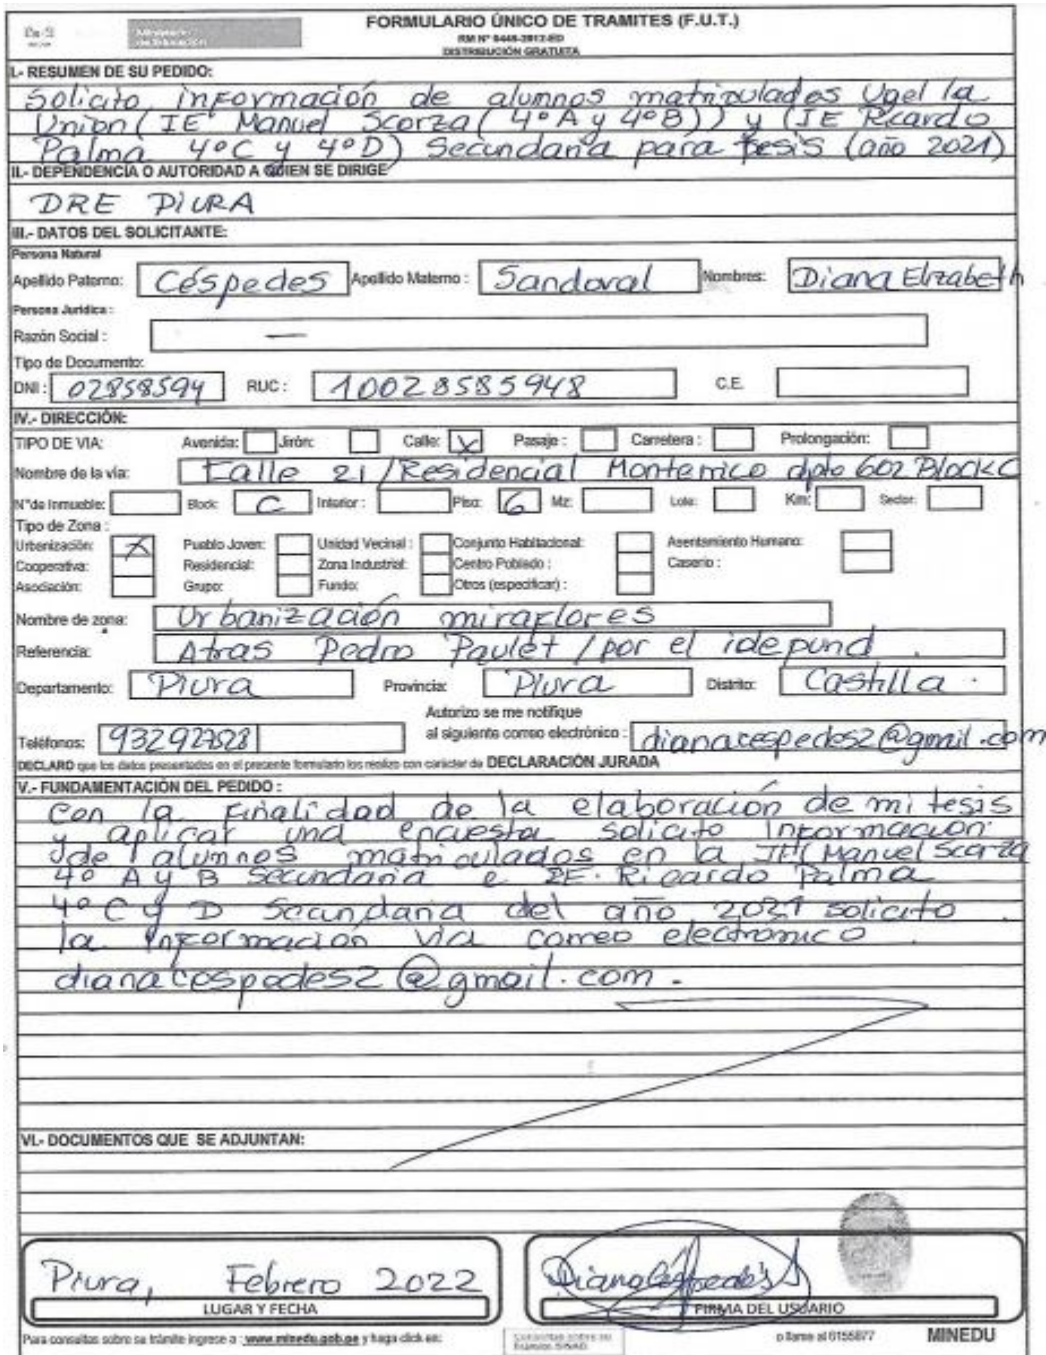 FORMULARIO ÚNICO DE TRAMITES (F.U.T.)
RM Nº 0445-2012-ED
DISTRIBUCIÓN GRATUITA
I.- RESUMEN DE SU PEDIDO:
Solicito información de alumnos matriculados Ugel la
Union (IE Manuel Scorza (4º A y 4º B)) y (IE Ricardo
Palma 4º C y 4º D) Secundaria para tesis (año 2021)
II.- DEPENDENCIA O AUTORIDAD A QUIEN SE DIRIGE
DRE PIURA
III.- DATOS DEL SOLICITANTE:
Persona Natural
Apellido Paterno: Céspedes Apellido Materno : Sandoval Nombres: Diana Elizabeth
Persona Jurídica :
Razón Social : —
Tipo de Documento:
DNI : 02858594 RUC : 10028585948 C.E.
IV.- DIRECCIÓN:
TIPO DE VIA: Avenida: Jirón: Calle: X Pasaje : Carretera : Prolongación:
Nombre de la vía: Calle 21 / Residencial Monterrico dpto 602 Block C
N°de Inmueble: Block: C Interior : Piso: 6 Mz: Lote: Km: Sector:
Tipo de Zona :
Urbanización: X Pueblo Joven: Unidad Vecinal : Conjunto Habitacional: Asentamiento Humano:
Cooperativa: Residencial: Zona Industrial: Centro Poblado : Caserio :
Asociación: Grupo: Fundo: Otros (especificar) :
Nombre de zona: Urbanización miraflores
Referencia: Atras Pedro Paulet / por el idepund .
Departamento: Piura Provincia: Piura Distrito: Castilla .
Autorizo se me notifique
Teléfonos: al siguiente correo electrónico : dianacespedes2@gmail.com
DECLARO que los datos presentados en el presente formulario los realizo con carácter de DECLARACIÓN JURADA
V.- FUNDAMENTACIÓN DEL PEDIDO :
Con la finalidad de la elaboración de mi tesis
y aplicar una encuesta solicito información
de alumnos matriculados en la IE (Manuel Scorza
4º A y B Secundaria e IE. Ricardo Palma
4º C y D Secundaria del año 2021 solicito
la información via correo electrónico .
dianacespedes2@gmail.com -
VI.- DOCUMENTOS QUE SE ADJUNTAN:
Piura, Febrero 2022
LUGAR Y FECHA
Diana Céspedes S
FIRMA DEL USUARIO
Para consultas sobre su trámite ingrese a : www.minedu.gob.pe y haga click en: o llame al 6155877 MINEDU